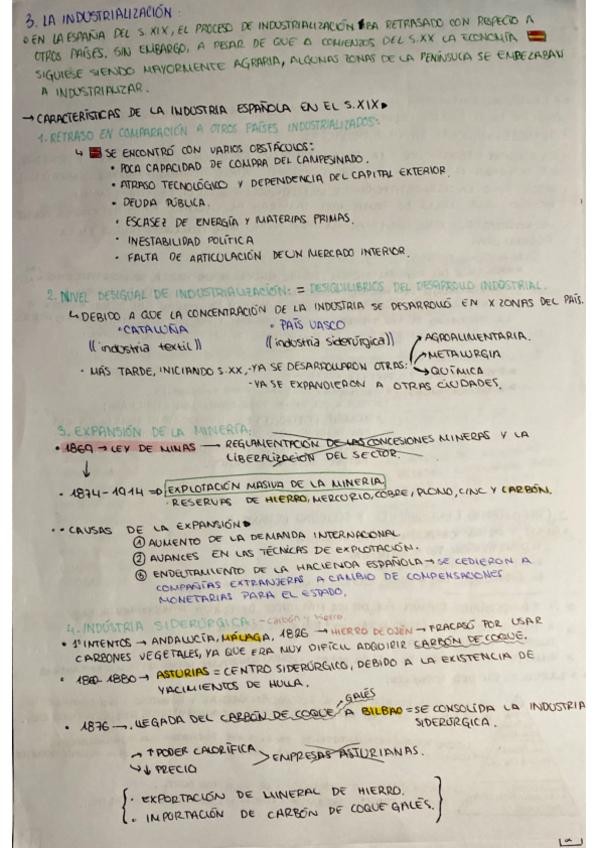 3. LA INDUSTRIALIZACIÓN:
○ EN LA ESPAÑA DEL S. XIX, EL PROCESO DE INDUSTRIALIZACIÓN IBA RETRASADO CON RESPECTO A
OTROS PAÍSES. SIN EMBARGO, A PESAR DE QUE A COMIENZOS DEL S.XX LA ECONOMÍA 🇪🇸
SIGUIESE SIENDO MAYORMENTE AGRARIA, ALGUNAS ZONAS DE LA PENÍNSULA SE EMPEZABAN
A INDUSTRIALIZAR.
→ CARACTERÍSTICAS DE LA INDUSTRIA ESPAÑOLA EN EL S.XIX▸
1. RETRASO EN COMPARACIÓN A OTROS PAÍSES INDUSTRIALIZADOS:
↳ 🇪🇸 SE ENCONTRÓ CON VARIOS OBSTÁCULOS:
• POCA CAPACIDAD DE COMPRA DEL CAMPESINADO.
• ATRASO TECNOLÓGICO Y DEPENDENCIA DEL CAPITAL EXTERIOR.
• DEUDA PÚBLICA.
• ESCASEZ DE ENERGÍA Y MATERIAS PRIMAS.
• INESTABILIDAD POLÍTICA
• FALTA DE ARTICULACIÓN DE UN MERCADO INTERIOR.
2. NIVEL DESIGUAL DE INDUSTRIALIZACIÓN: = DESEQUILIBRIOS DEL DESARROLLO INDUSTRIAL.
↳ DEBIDO A QUE LA CONCENTRACIÓN DE LA INDUSTRIA SE DESARROLLÓ EN X ZONAS DEL PAÍS.
• CATALUÑA • PAÍS VASCO
((industria textil)) ((industria siderúrgica))
→ AGROALIMENTARIA.
→ METALURGIA
• MÁS TARDE, INICIANDO S.XX, - YA SE DESARROLLARON OTRAS: → QUÍMICA
- YA SE EXPANDIERON A OTRAS CIUDADES.
3. EXPANSIÓN DE LA MINERÍA:
• 1869 → LEY DE MINAS — REGLAMENTACIÓN DE LAS CONCESIONES MINERAS Y LA
LIBERALIZACIÓN DEL SECTOR.
↓
• 1874-1914 ⇒ EXPLOTACIÓN MASIVA DE LA MINERIA
• RESERVAS DE HIERRO, MERCURIO, COBRE, PLOMO, CINC Y CARBÓN.
• • CAUSAS DE LA EXPANSIÓN▸
① AUMENTO DE LA DEMANDA INTERNACIONAL
② AVANCES EN LAS TÉCNICAS DE EXPLOTACIÓN.
③ ENDEUTAMIENTO DE LA HACIENDA ESPAÑOLA → SE CEDIERON A
COMPAÑÍAS EXTRANJERAS A CAMBIO DE COMPENSACIONES
MONETARIAS PARA EL ESTADO.
4. INDUSTRIA SIDERÚRGICA: - carbón y hierro
• 1º INTENTOS → ANDALUCÍA, MÁLAGA, 1826 → HIERRO DE OJÉN → FRACASÓ POR USAR
CARBONES VEGETALES, YA QUE ERA MUY DIFÍCIL ADQUIRIR CARBÓN DE COQUE.
• 1860-1880 → ASTURIAS = CENTRO SIDERÚRGICO, DEBIDO A LA EXISTENCIA DE
YACIMIENTOS DE HULLA.
GALÉS
• 1876 → LLEGADA DEL CARBÓN DE COQUE A BILBAO = SE CONSOLIDA LA INDUSTRIA
SIDERÚRGICA.
→ ↑ PODER CALORÍFICA
> EMPRESAS ASTURIANAS.
↳ ↓ PRECIO
{ • EXPORTACIÓN DE MINERAL DE HIERRO. }
{ • IMPORTACIÓN DE CARBÓN DE COQUE GALÉS. }